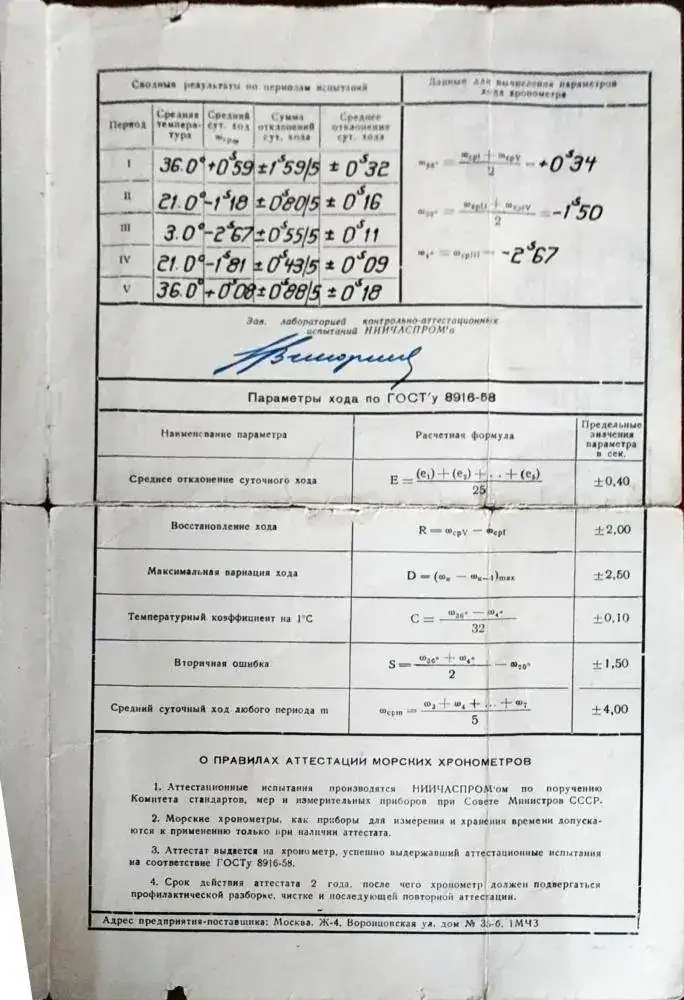 Сводные результаты по периодам испытаний
Данные для вычисления параметров
хода хронометра
Период
Средняя
темпера-
тура
Средний
сут. ход
ωсрm
Сумма
отклонений
сут. хода
Среднее
отклонение
сут. хода
I 36.0° +0ˢ59 ±1ˢ59/5 ±0ˢ32
II 21.0° -1ˢ18 ±0ˢ80/5 ±0ˢ16
III 3.0° -2ˢ67 ±0ˢ55/5 ±0ˢ11
IV 21.0° -1ˢ81 ±0ˢ43/5 ±0ˢ09
V 36.0° +0ˢ08 ±0ˢ88/5 ±0ˢ18
ω₃₆° = (ωсрI + ωсрV)/2 = +0ˢ34
ω₂₀° = (ωсрII + ωсрIV)/2 = -1ˢ50
ω₄° = ωсрIII = -2ˢ67
Зав. лабораторией контрольно-аттестационных
испытаний НИИЧАСПРОМ'а
Параметры хода по ГОСТ'у 8916-58
Наименование параметра
Расчетная формула
Предельные
значения
параметра
в сек.
Среднее отклонение суточного хода E = ((e₁) + (e₂) + . . + (e₅))/25 ±0,40
Восстановление хода R = ωсрV − ωсрI ±2,00
Максимальная вариация хода D = (ωₙ − ωₙ₋₁)max ±2,50
Температурный коэффициент на 1°С C = (ω₃₆° − ω₄°)/32 ±0,10
Вторичная ошибка S = (ω₃₆° + ω₄°)/2 − ω₂₀° ±1,50
Средний суточный ход любого периода m ωсрm = (ω₃ + ω₄ + ... + ω₇)/5 ±4,00
О ПРАВИЛАХ АТТЕСТАЦИИ МОРСКИХ ХРОНОМЕТРОВ
1. Аттестационные испытания производятся НИИЧАСПРОМ'ом по поручению
Комитета стандартов, мер и измерительных приборов при Совете Министров СССР.
2. Морские хронометры, как приборы для измерения и хранения времени допуска-
ются к применению только при наличии аттестата.
3. Аттестат выдается на хронометр, успешно выдержавший аттестационные испытания
на соответствие ГОСТу 8916-58.
4. Срок действия аттестата 2 года, после чего хронометр должен подвергаться
профилактической разборке, чистке и последующей повторной аттестации.
Адрес предприятия-поставщика: Москва, Ж-4, Воронцовская ул. дом № 35-б. 1МЧЗ